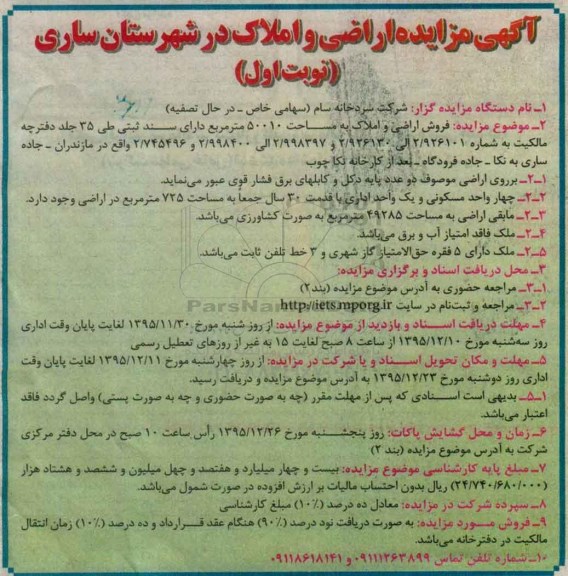 آگهی مزایده اراضی و املاک در شهرستان ساری
(نوبت اول)
۱ـ نام دستگاه مزایده گزار: شرکت سردخانه سام (سهامی خاص ـ در حال تصفیه)
۲ـ موضوع مزایده: فروش اراضی و املاک به مساحت ۵۰۰۱۰ مترمربع دارای سند ثبتی طی ۳۵ جلد دفترچه
مالکیت به شماره ۲/۹۲۶۱۰۱ الی ۲/۹۲۶۱۳۰ و ۲/۹۹۸۳۹۷ الی ۲/۹۹۸۴۰۰ و ۲/۷۴۵۴۹۶ واقع در مازندران ـ جاده
ساری به نکا ـ جاده فرودگاه ـ بعد از کارخانه نکا چوب
۱ـ۲ـ برروی اراضی موصوف دو عدد پایه دکل و کابلهای برق فشار قوی عبور می‌نماید.
۲ـ۲ـ چهار واحد مسکونی و یک واحد اداری با قدمت ۳۰ سال جمعاً به مساحت ۷۲۵ مترمربع در اراضی وجود دارد.
۳ـ۲ـ مابقی اراضی به مساحت ۴۹۲۸۵ مترمربع به صورت کشاورزی می‌باشد.
۴ـ۲ـ ملک فاقد امتیاز آب و برق می‌باشد.
۵ـ۲ـ ملک دارای ۵ فقره حق‌الامتیاز گاز شهری و ۳ خط تلفن ثابت می‌باشد.
۳ـ محل دریافت اسناد و برگزاری مزایده:
۱ـ۳ـ مراجعه حضوری به آدرس موضوع مزایده (بند۲)
۲ـ۳ـ مراجعه و ثبت‌نام در سایت http://iets.mporg.ir
۴ـ مهلت دریافت اسناد و بازدید از موضوع مزایده: از روز شنبه مورخ ۱۳۹۵/۱۱/۳۰ لغایت پایان وقت اداری
روز سه‌شنبه مورخ ۱۳۹۵/۱۲/۱۰ از ساعت ۸ صبح لغایت ۱۵ به غیر از روزهای تعطیل رسمی
۵ـ مهلت و مکان تحویل اسناد و یا شرکت در مزایده: از روز چهارشنبه مورخ ۱۳۹۵/۱۲/۱۱ لغایت پایان وقت
اداری روز دوشنبه مورخ ۱۳۹۵/۱۲/۲۳ به آدرس موضوع مزایده و دریافت رسید.
۱ـ۵ـ بدیهی است اسنادی که پس از مهلت مقرر (چه به صورت حضوری و چه به صورت پستی) واصل گردد فاقد
اعتبار می‌باشد.
۶ـ زمان و محل گشایش پاکات: روز پنجشنبه مورخ ۱۳۹۵/۱۲/۲۶ رأس ساعت ۱۰ صبح در محل دفتر مرکزی
شرکت به آدرس موضوع مزایده (بند ۲)
۷ـ مبلغ پایه کارشناسی موضوع مزایده: بیست و چهار میلیارد و هفتصد و چهل میلیون و ششصد و هشتاد هزار
(۲۴/۷۴۰/۶۸۰/۰۰۰) ریال بدون احتساب مالیات بر ارزش افزوده در صورت شمول می‌باشد.
۸ـ سپرده شرکت در مزایده: معادل ده درصد (۱۰٪) مبلغ کارشناسی
۹ـ فروش مورد مزایده: به صورت دریافت نود درصد (۹۰٪) هنگام عقد قرارداد و ده درصد (۱۰٪) زمان انتقال
مالکیت در دفترخانه می‌باشد.
۱۰ـ شماره تلفن تماس ۰۹۱۱۱۳۶۳۸۹۹ و ۰۹۱۱۸۶۱۸۱۴۱